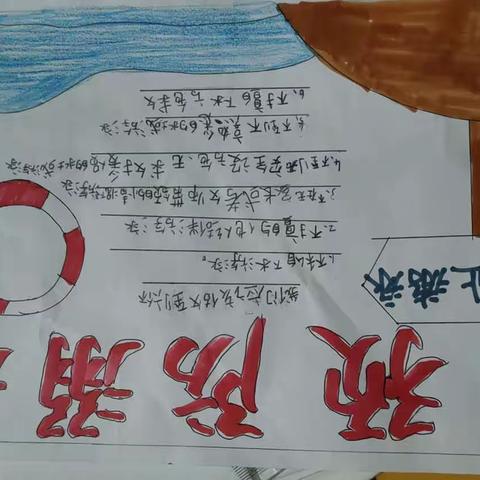 预防溺
止游泳
我们应该做到六不
1.不私自下水游泳。
2.不擅自与他人结伴游泳
3.不在无家长或老师带领的情况游泳
4.不到无安全设施、无救护人员的水域游泳
5.不到不熟悉的水域游泳
6、不擅自下水施救